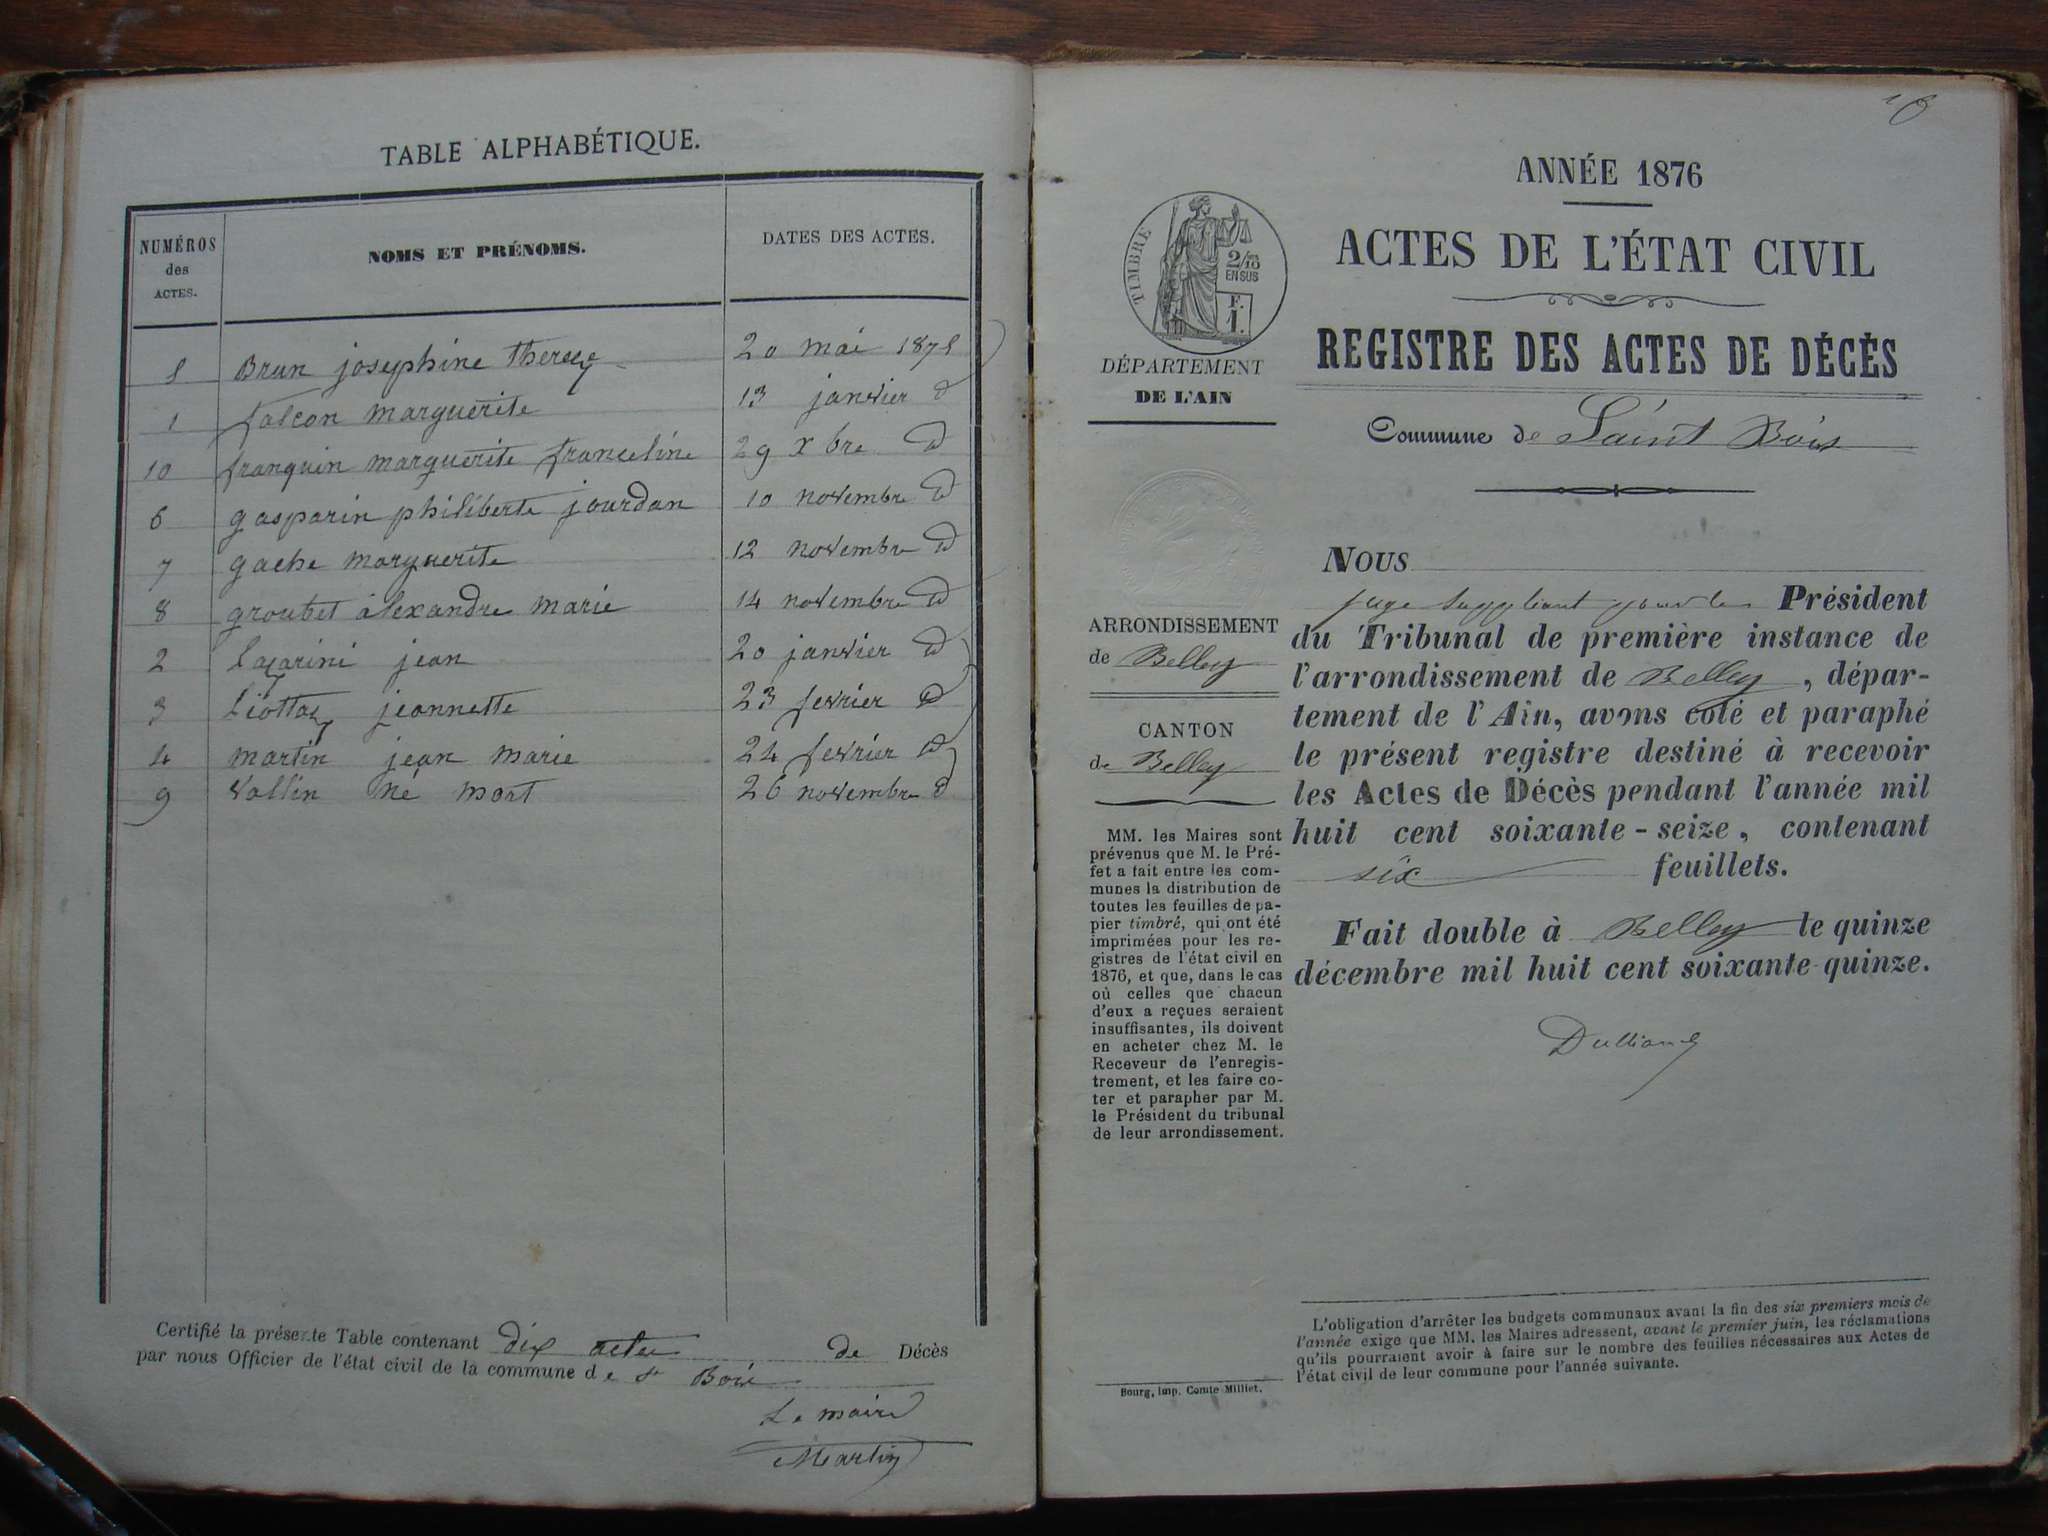 TABLE ALPHABÉTIQUE.
NUMÉROS
des
ACTES.
NOMS ET PRÉNOMS.
DATES DES ACTES.
5 Brun josephine therese 20 mai 1875
1 falcon marguerite 13 janvier d
10 franquin marguerite franceline 29 xbre d
6 gasparin philiberte jourdan 10 novembre d
7 gache marguerite 12 novembre d
8 groubet alexandre marie 14 novembre d
2 lazarini jean 20 janvier d
3 liottaz jeannette 23 fevrier d
4 martin jean marie 24 fevrier d
9 Vallin né mort 26 novembre d
Certifié la présente Table contenant dix actes de Décès
par nous Officier de l'état civil de la commune de St Bois
Le maire
Martin
ANNÉE 1876
ACTES DE L'ÉTAT CIVIL
REGISTRE DES ACTES DE DÉCÈS
Commune de Saint Bois
TIMBRE
2/10
EN SUS
F.
1.
DÉPARTEMENT
DE L'AIN
ARRONDISSEMENT
de Belley
CANTON
de Belley
MM. les Maires sont
prévenus que M. le Pré-
fet a fait entre les com-
munes la distribution de
toutes les feuilles de pa-
pier timbré, qui ont été
imprimées pour les re-
gistres de l'état civil en
1876, et que, dans le cas
où celles que chacun
d'eux a reçues seraient
insuffisantes, ils doivent
en acheter chez M. le
Receveur de l'enregis-
trement, et les faire co-
ter et parapher par M.
le Président du tribunal
de leur arrondissement.
NOUS
juge suppléant pour le Président
du Tribunal de première instance de
l'arrondissement de Belley, dépar-
tement de l'Ain, avons coté et paraphé
le présent registre destiné à recevoir
les Actes de Décès pendant l'année mil
huit cent soixante-seize, contenant
six feuillets.
Fait double à Belley le quinze
décembre mil huit cent soixante-quinze.
L'obligation d'arrêter les budgets communaux avant la fin des six premiers mois de
l'année exige que MM. les Maires adressent, avant le premier juin, les réclamations
qu'ils pourraient avoir à faire sur le nombre des feuilles nécessaires aux Actes de
l'état civil de leur commune pour l'année suivante.
Bourg, imp. Comte Milliet.